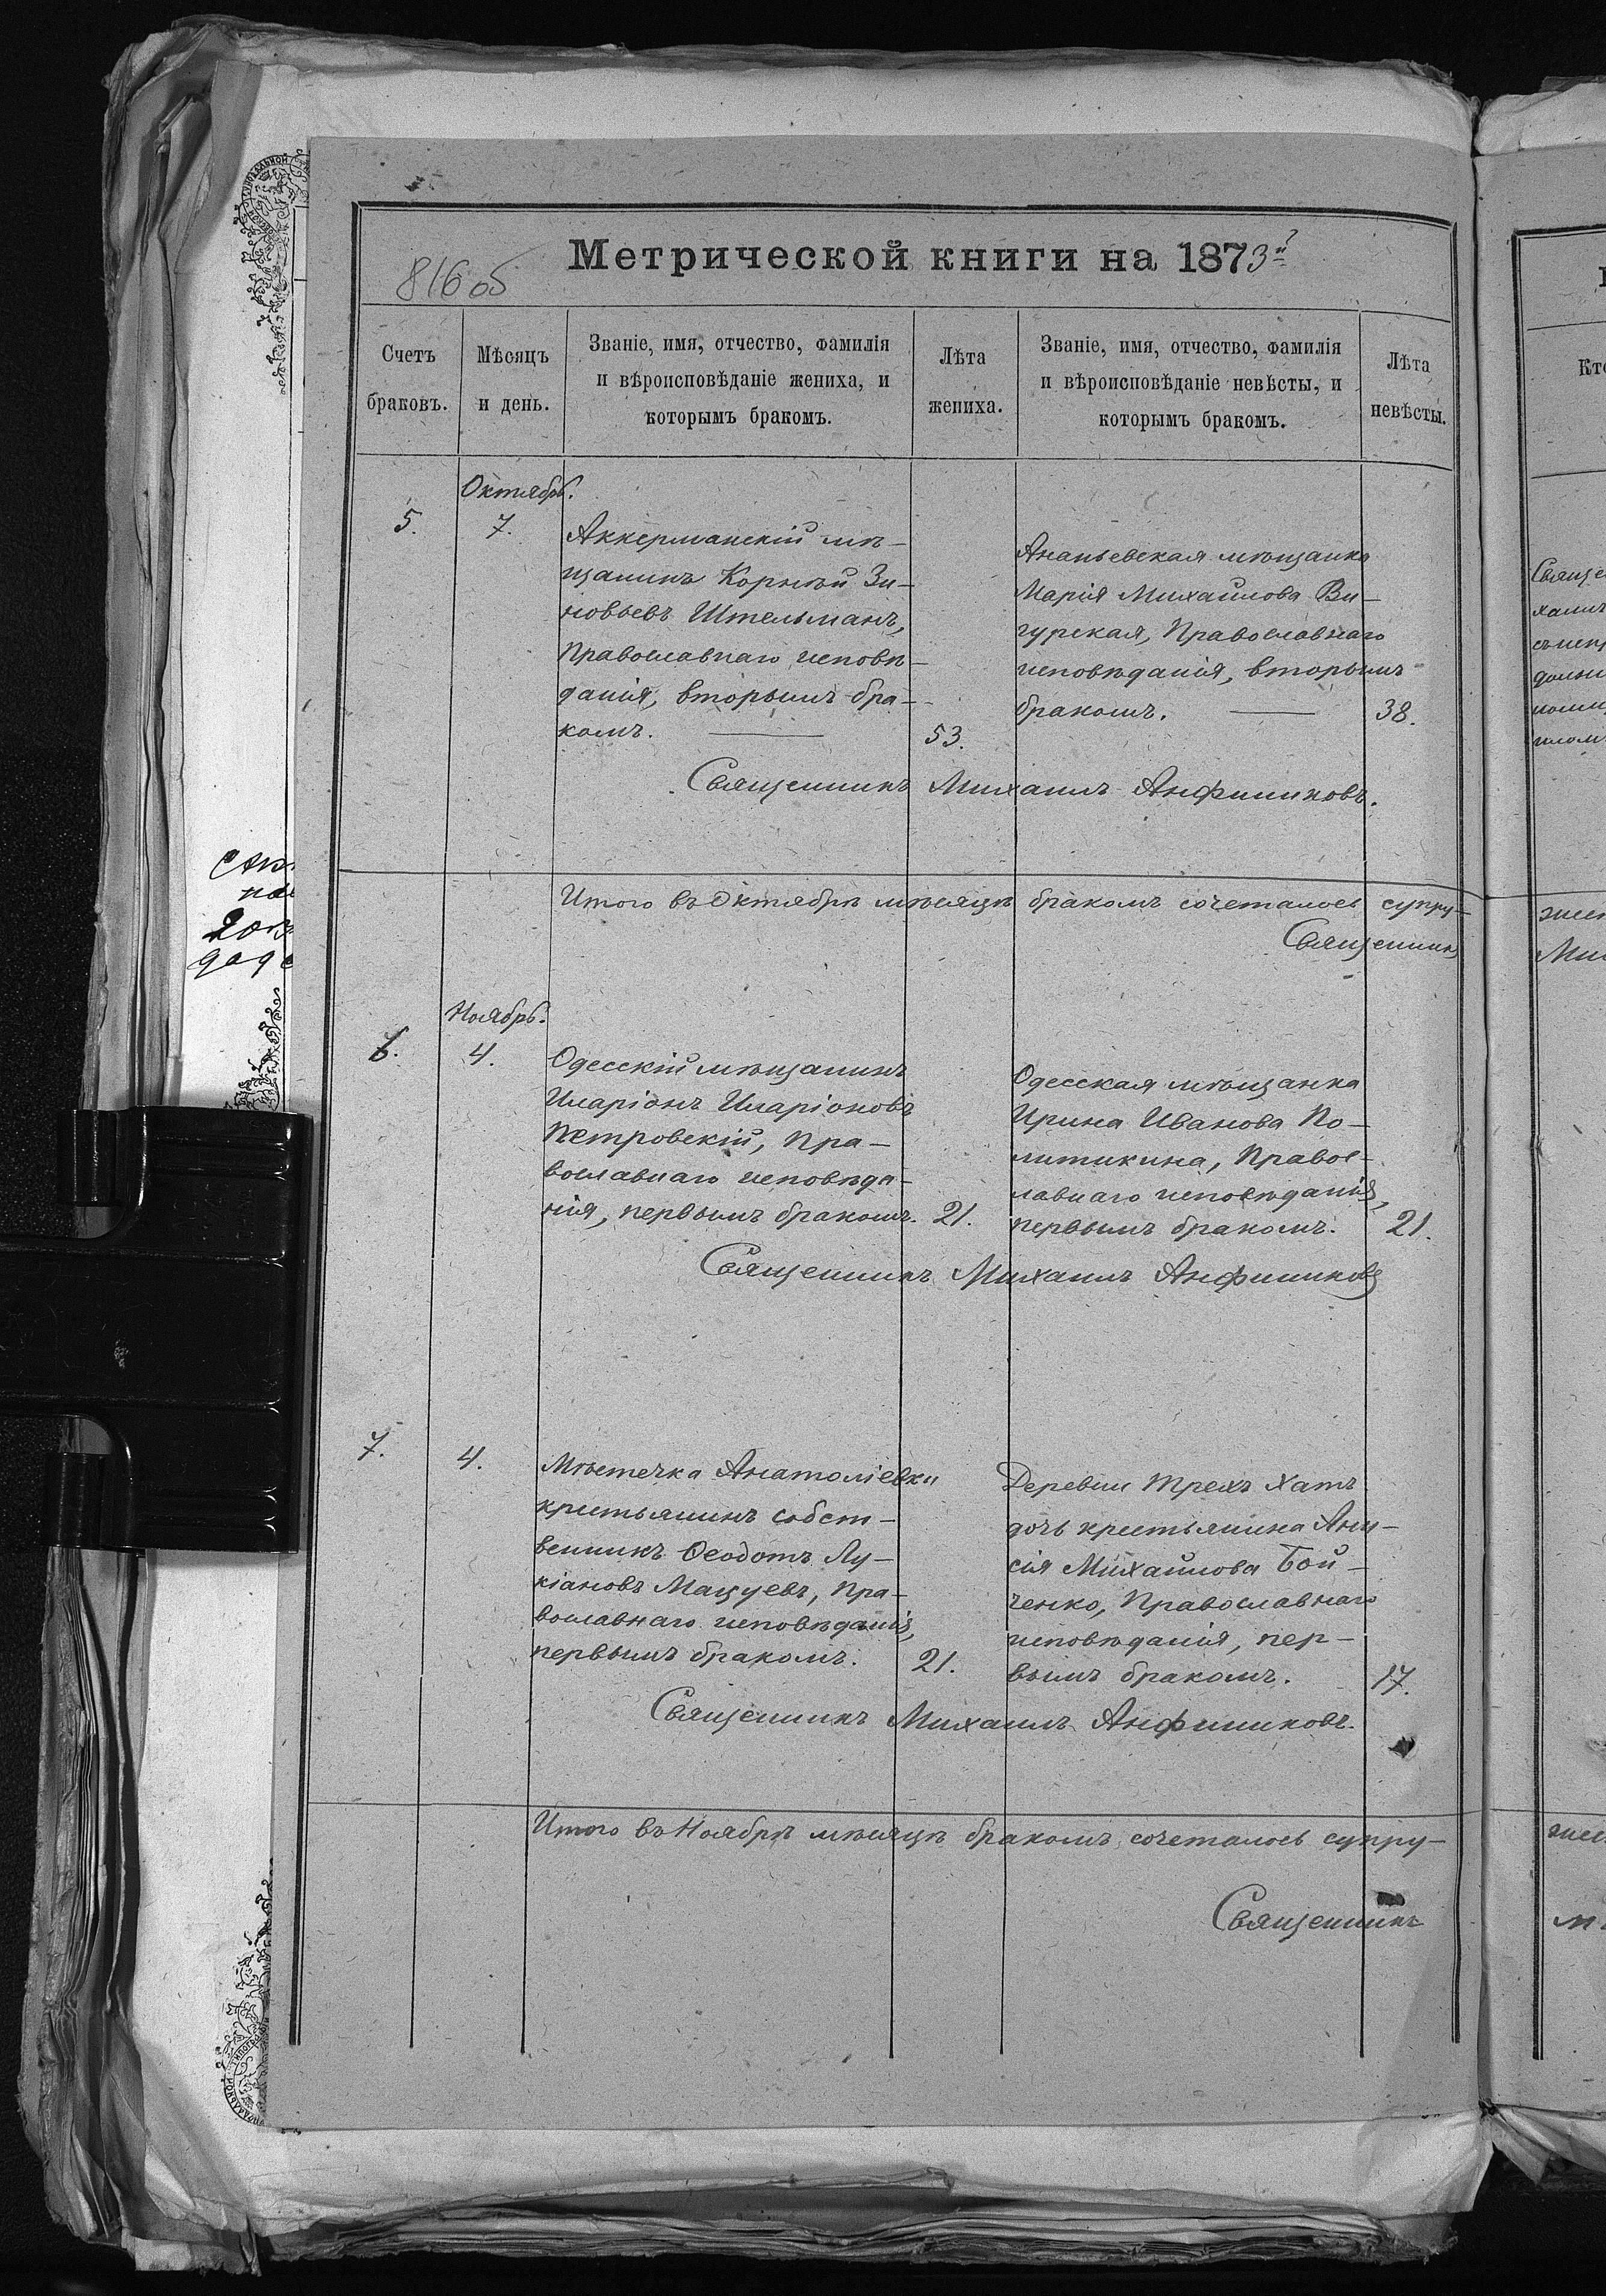 Метрической книги на 1873й
816 об
Счетъ браковъ.
Мѣсяцъ и день.
Званіе, имя, отчество, фамилія
и вѣроисповѣданіе жениха, и
которымъ бракомъ.
Лѣта жениха.
Званіе, имя, отчество, фамилія
и вѣроисповѣданіе невѣсты, и
которымъ бракомъ.
Лѣта невѣсты.
Октябрь.
5.
7.
Аккерманскій мѣ-
щанинъ Корнѣй Зи-
новьевъ Штельманъ,
Православнаго исповѣ-
данія, вторымъ бра-
комъ.
53.
Ананьевская мѣщанка
Марія Михайлова Ви-
гурская, Православнаго
исповѣданія, вторымъ
бракомъ.
38.
Священникъ Михаилъ Анфиниковъ.
Итого въ Октябрѣ мѣсяцѣ бракомъ сочеталось супру-
Священникъ
Ноябрь.
6.
4.
Одесскій мѣщанинъ
Иларіонъ Иларіоновъ
Петровскій, Пра-
вославнаго исповѣда-
нія, первымъ бракомъ.
21.
Одесская мѣщанка
Ирина Иванова По-
литикина, Правос-
лавнаго исповѣданія,
первымъ бракомъ.
21.
Священникъ Михаилъ Анфиниковъ
7.
4.
Мѣстечка Анатоліевки
крестьянинъ собст-
венникъ Ѳеодотъ Лу-
кіановъ Мацуевъ, Пра-
вославнаго исповѣданія,
первымъ бракомъ.
21.
Деревни Трехъ Хатъ
дочь крестьянина Ани-
сія Михайлова Бой-
ченко, Православнаго
исповѣданія, пер-
вымъ бракомъ.
17.
Священникъ Михаилъ Анфиниковъ.
Итого въ Ноябрѣ мѣсяцѣ бракомъ сочеталось супру-
Священникъ